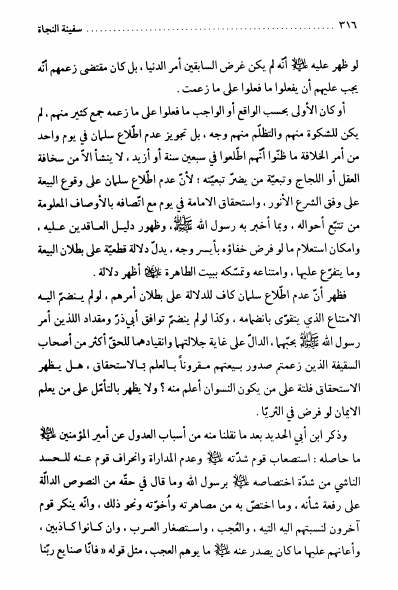 ٣١٦ ................................................ سفينة النجاة
لو ظهر عليه ﷺ أنّه لم يكن غرض السابقين أمر الدنيا ، بل كان مقتضى زعمهم أنّه
يجب عليهم أن يفعلوا ما فعلوا على ما زعمت .
أو كان الأولى بحسب الواقع أو الواجب ما فعلوا على ما زعمه جمع كثير منهم ، لم
يكن للشكوة منهم والتظلّم منهم وجه ، بل تجويز عدم اطّلاع سلمان في يوم واحد
من أمر الخلافة ما ظنّوا أنّهم اطّلعوا في سبعين سنة أو أزيد ، لا ينشأ الاّ من سخافة
العقل أو اللجاج وتبعيّة من يضرّ تبعيّته ؛ لأنّ عدم اطّلاع سلمان على وقوع البيعة
على وفق الشرع الأنور ، واستحقاق الامامة في يوم مع اتّصافه بالأوصاف المعلومة
من تتبّع أحواله ، وبما أخبر به رسول الله ﷺ ، وظهور دليل العاقدين عليه ،
وامكان استعلام ما لو فرض خفاؤه بأيسر وجه ، يدلّ دلالة قطعيّة على بطلان البيعة
وما يتفرّع عليها ، وامتناعه وتمسّكه ببيت الطاهرة أظهر دلالة .
فظهر أنّ عدم اطّلاع سلمان كاف للدلالة على بطلان أمرهم ، لو لم ينضمّ اليه
الامتناع الذي يتقوّى بانضمامه ، وكذا لو لم ينضمّ توافق أبي‌ذرّ ومقداد اللذين أمر
رسول الله ﷺ بحبّهما ، الدالّ على غاية جلالتهما وانقيادهما للحقّ أكثر من أصحاب
السقيفة الذين زعمتم صدور بيعتهم مقروناً بالعلم بالاستحقاق ، هل يظهر
الاستحقاق فلتة على من يكون النسوان أعلم منه ؟ ولا يظهر بالتأمّل على من يعلم
الايمان لو فرض في الثريّا .
وذكر ابن أبي الحديد بعد ما نقلنا منه من أسباب العدول عن أمير المؤمنين
ما حاصله : استصعاب قوم شدّته وعدم المداراة وانحراف قوم عنه للحسد
الناشي من شدّة اختصاصه برسول الله وما قال في حقّه من النصوص الدالّة
على رفعة شأنه ، وما اختصّ به من مصاهرته وأخوّته ونحو ذلك ، وانّه ينكر قوم
آخرون لنسبتهم اليه التيه ، والعُجب ، واستصغار العرب ، وان كانوا كاذبين ،
وأعانهم عليها ما كان يصدر عنه ما يوهم العجب ، مثل قوله « فانّا صنايع ربّنا